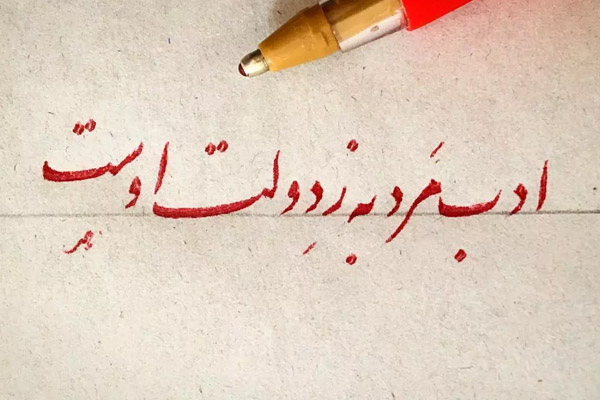 ادب مَرد به زِ دولت اوست